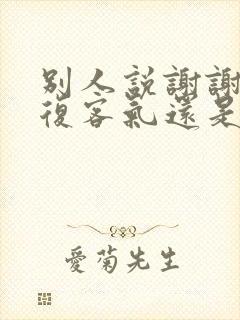 別人説謝謝
復客氣還是
愛菊先生